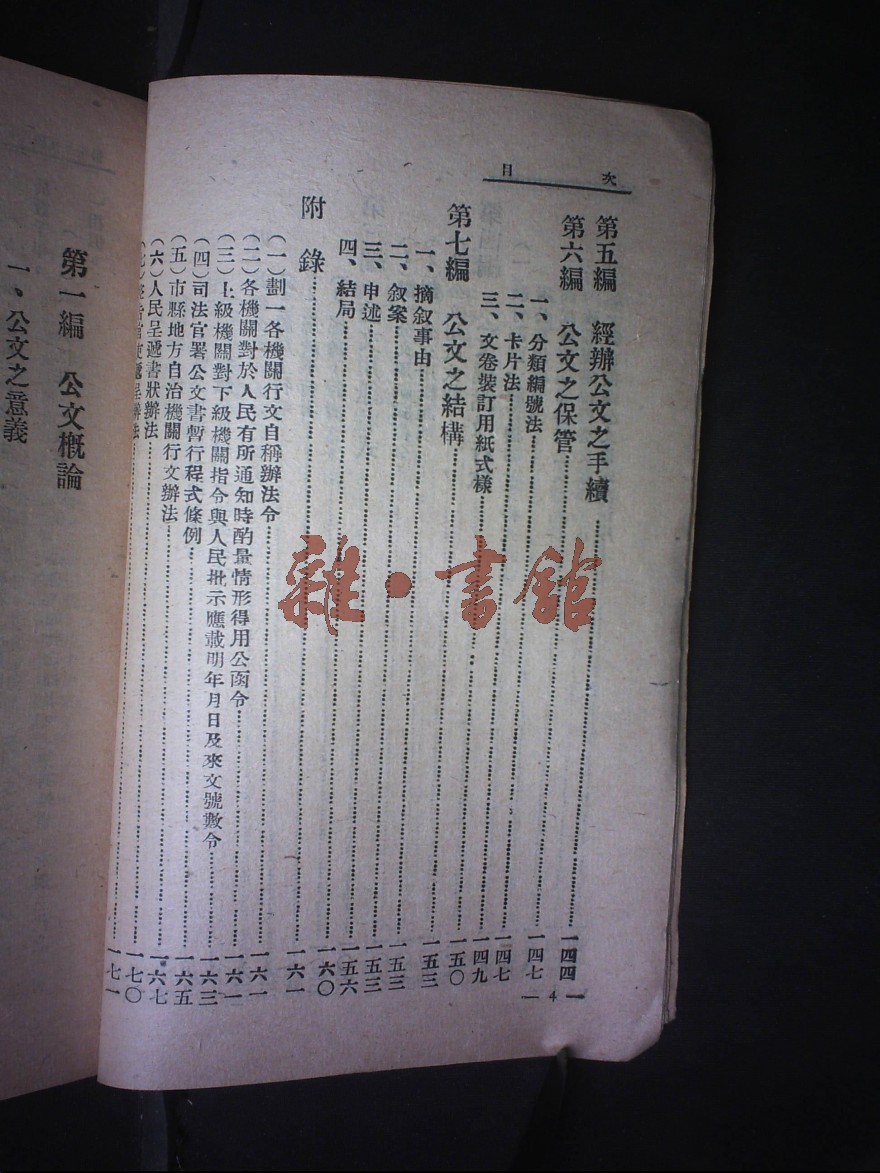 目次
第五編　經辦公文之手續……一四四
第六編　公文之保管……一四七
一、分類編號法……一四七
二、卡片法……一四九
三、文卷裝訂用紙式樣……一五〇
第七編　公文之結構……一五三
一、摘叙事由……一五三
二、叙案……一五三
三、申述……一五六
四、結局……一六〇
附錄……一六一
（一）劃一各機關行文自稱辦法令……一六一
（二）各機關對於人民有所通知時酌量情形得用公函令……一六一
（三）上級機關對下級機關指令與人民批示應載明年月日及來文號數令……一六三
（四）司法官署公文書暫行程式條例……一六五
（五）市縣地方自治機關行文辦法……一六七
（六）人民呈遞書狀辦法……一七〇
（七）呈辦法……一七一
— 4 —
第一編　公文概論
一、公文之意義
雜・書館